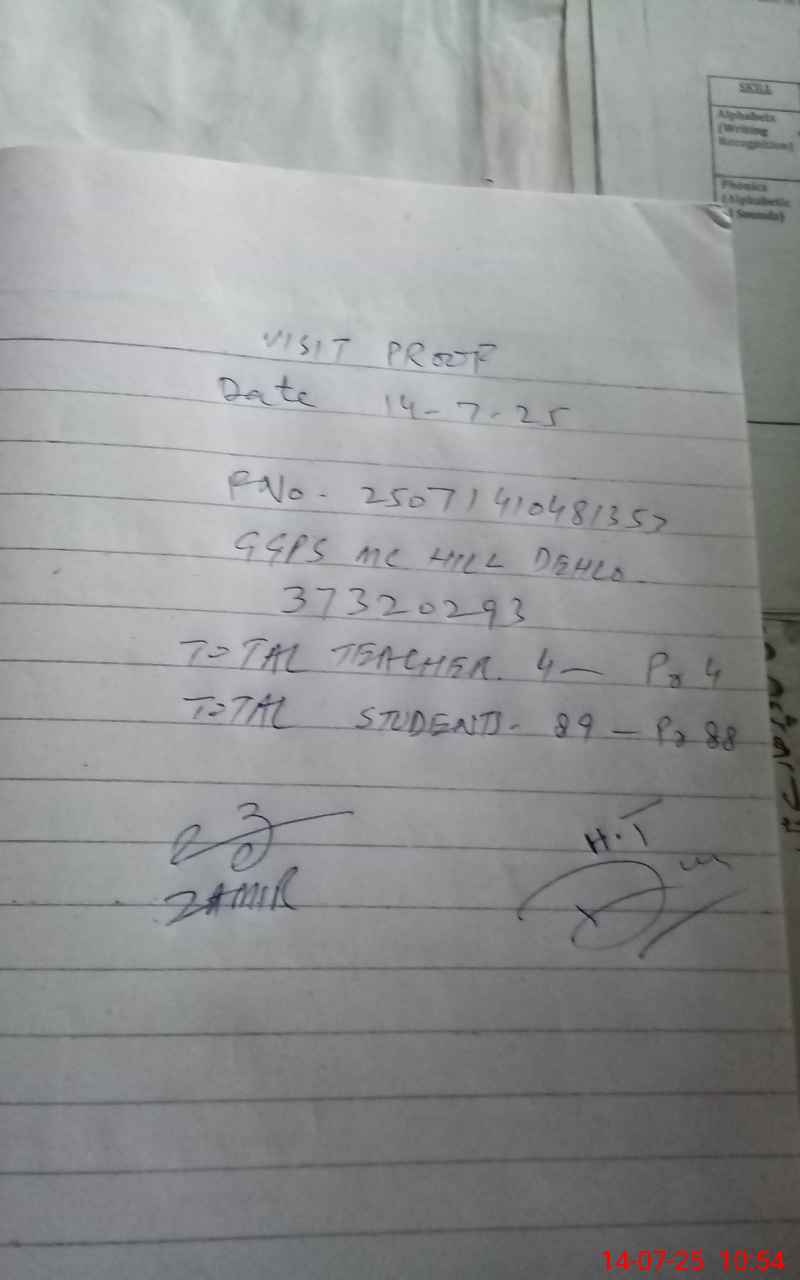 SKILL
Alphabets
(Writing
Recognition)
Phonics
(Alphabetic
Sounds)
VISIT PROOF
Date 14-7-25
PNo. 25071410481357
GGPS MC HILL DEHLO.
37320293
TOTAL TEACHER. 4 — Pr 4
TOTAL STUDENTS. 89 — Pr 88
H.T
ZAMIR
14-07-25 10:54